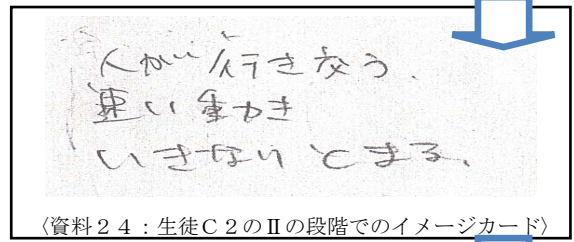 人が行き交う.
速い動き
いきなりとまる.
〈資料24：生徒C2のⅡの段階でのイメージカード〉